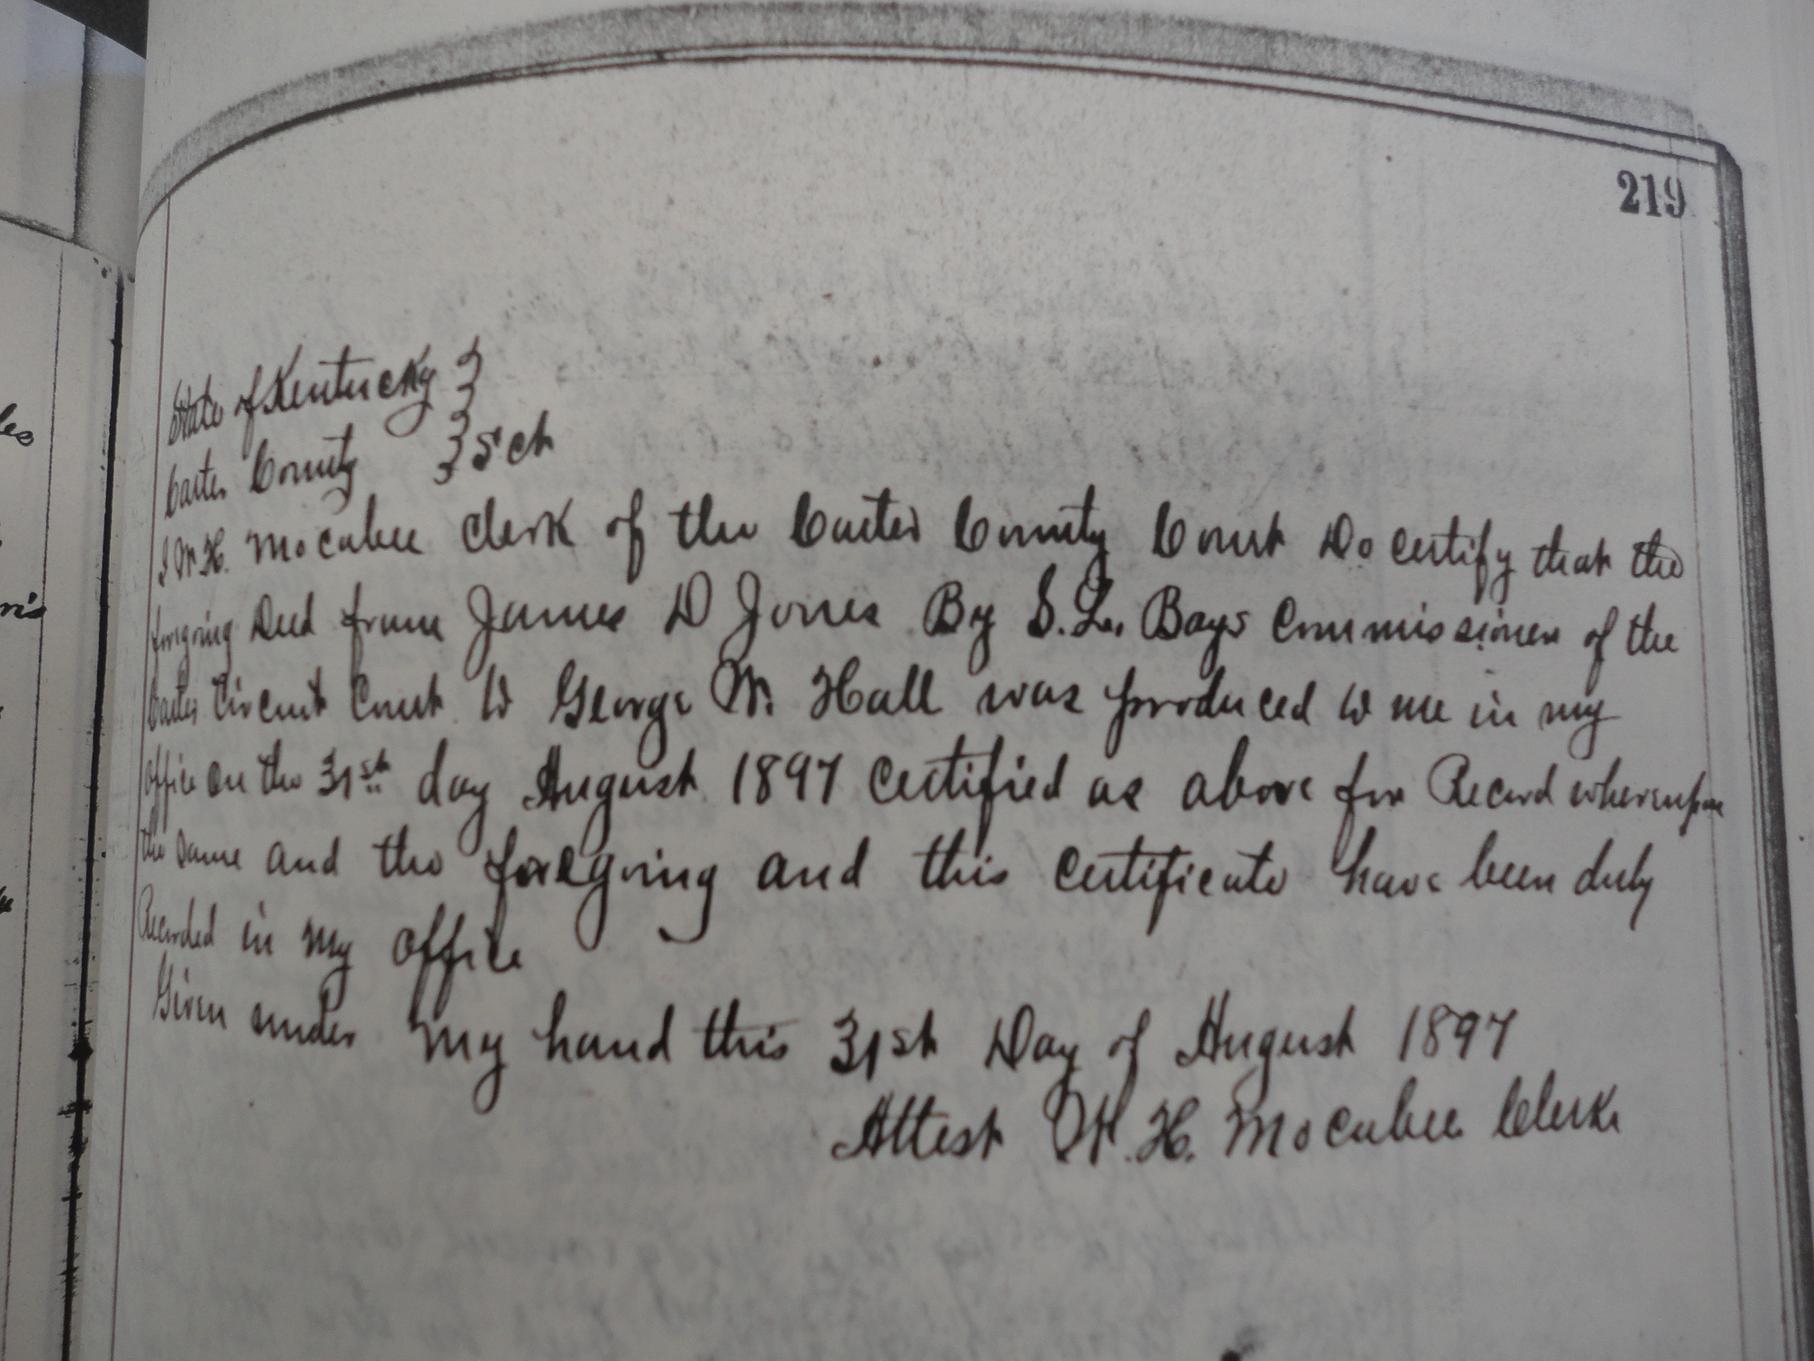 219
State of Kentucky }
Carter County } Sct
I W. H. McCabee Clerk of the Carter County Court Do certify that the
foregoing Deed from James D Jones By S. L. Bays Commissioner of the
Carter Circuit Court to George W. Hall was produced to me in my
office on the 31st day August 1897 certified as above for Record whereupon
the same and the foregoing and this certificate have been duly
Recorded in my office
Given under my hand this 31st Day of August 1897
Attest W. H. McCabee Clerk